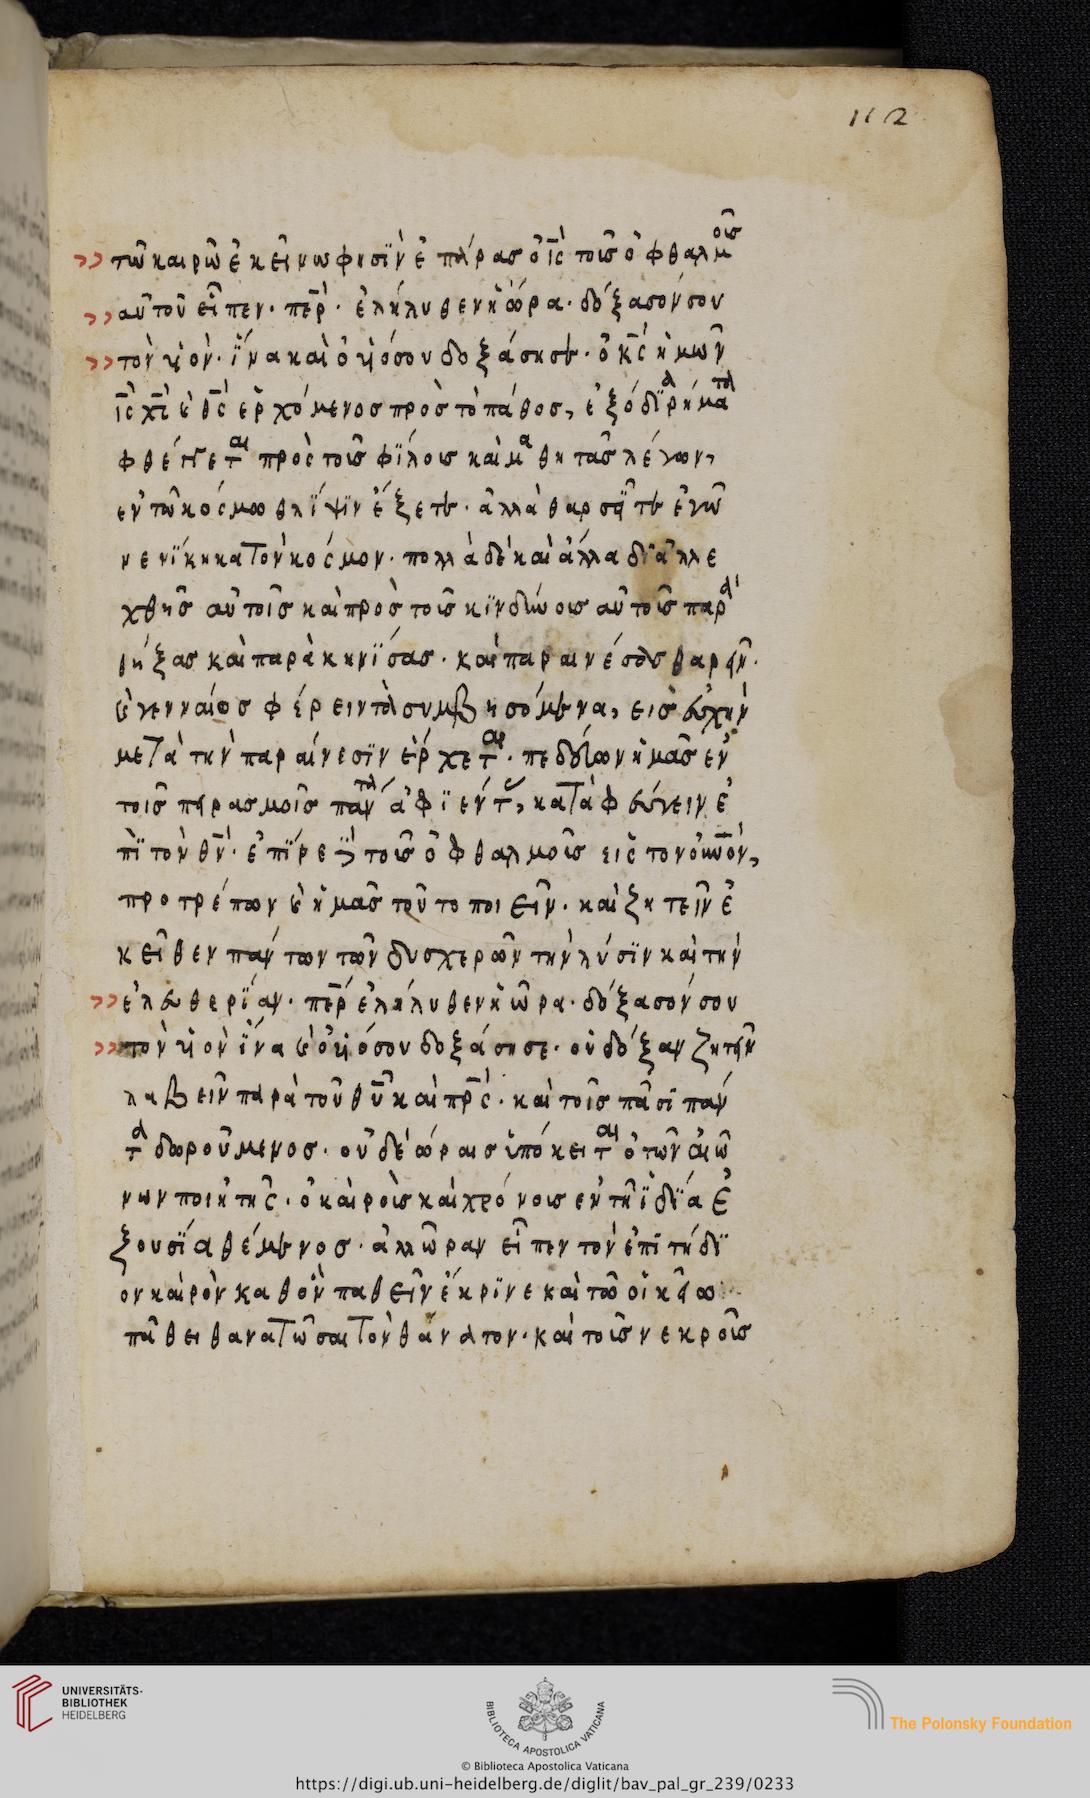 112
τῶ καιρῶ ἐκείνω φησὶν ἐπάρας ὁ ῑς̄ τοῖς ὀφθαλμοῖς
αὐτοῦ εἶπεν· πε̄ρ· ἐλήλυθεν ἡ ὥρα· δόξασόν σου
τὸν ὑιὸν· ἵνα καὶ ὁ ὑιός σου δοξάση σε· ὁ κ̄ς̄ ἡμῶν
ῑς̄ χ̄ς̄ ὁ θ̄ς̄ ἐρχόμενος πρὸς τὸ πάθος, ἐξόδια ῥήματα
φθέγγεται πρὸς τοῖς φίλοις καὶ μαθητὰς λέγων,
ἐν τῶ κόσμω θλίψιν ἔξετε· ἀλλὰ θαρσεῖτε ἐγῶ
νενίκηκα τὸν κόσμον· πολλὰ δὲ καὶ ἄλλα διαλλε
χθεὶς αὐτοῖς καὶ πρὸς τοῖς κινδύνοις αὐτοῖς παρα
καὶ παρακινίσας· καὶ παραινέσας θαρεῖν·
καὶ γενναίως φέρειν τὰ συμβησόμενα, εἰς εὐχὴν
μετὰ τὴν παραίνεσιν ἔρχεται· πεδεύων ἡμᾶς ἐν
τοῖς πειρασμοῖς πάντα ἀφιέντας, καταφεύγειν ἐ
πὶ τὸν θ̄ν̄· ἐπῖρε γὰρ τοῖς ὀφθαλμοῖς εἰς τὸν οὐνον,
προτρέπων καὶ ἡμᾶς τοῦτο ποιεῖν· καὶ ζητεῖν ἐ
κεῖθεν πάντων τῶν δυσχερῶν τὴν λύσιν καὶ τὴν
ἐλευθερίαν· πε̄ρ ἐλήλυθεν ἡ ὥρα· δόξασόν σου
τὸν ὑιὸν ἵνα καὶ ὁ ὑιός σου δοξάση σε· οὐ δόξαν ζητῶν
λαβεῖν παρὰ τοῦ θ̄ῡ καὶ πρ̄ς· καὶ τοῖς πᾶσι πάν
τα δωρούμενος· οὐδὲ ὥραις ὑπόκειται ὁ τῶν αἰώ
νων ποιητὴς· ὁ καιροὺς καὶ χρόνοις ἐν τῆ ἰδία ἐ
ξουσία θέμενος· ἀλλ' ὥραν εἶπεν τὸν ἐπιτήδι
ον καιρὸν καθ' ὃν παθεῖν ἔκρινε καὶ τῶ οἰκείω
πάθει θανατῶσαι τὸν θάνατον· καὶ τοῖς νεκροῖς
UNIVERSITÄTS-
BIBLIOTHEK
HEIDELBERG
BIBLIOTECA APOSTOLICA VATICANA
The Polonsky Foundation
© Biblioteca Apostolica Vaticana
https://digi.ub.uni-heidelberg.de/diglit/bav_pal_gr_239/0233